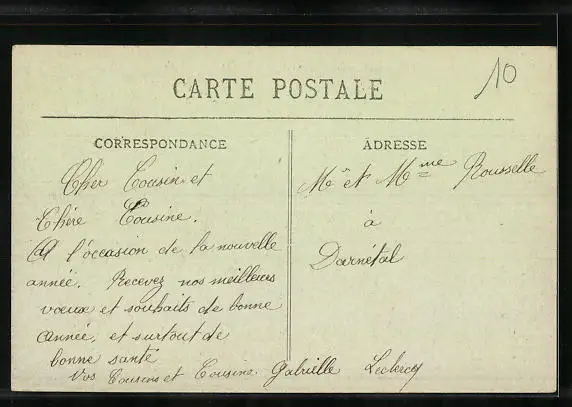 10
CARTE POSTALE
CORRESPONDANCE
Cher Cousin et
Chére Cousine.
A l'occasion de la nouvelle
année. Recevez nos meilleurs
vœux et souhaits de bonne
année, et surtout de
bonne santé
Vos Cousins et Cousine. Gabrielle Leclercq
ADRESSE
Mr et Mme Rousselle
à
Darnétal